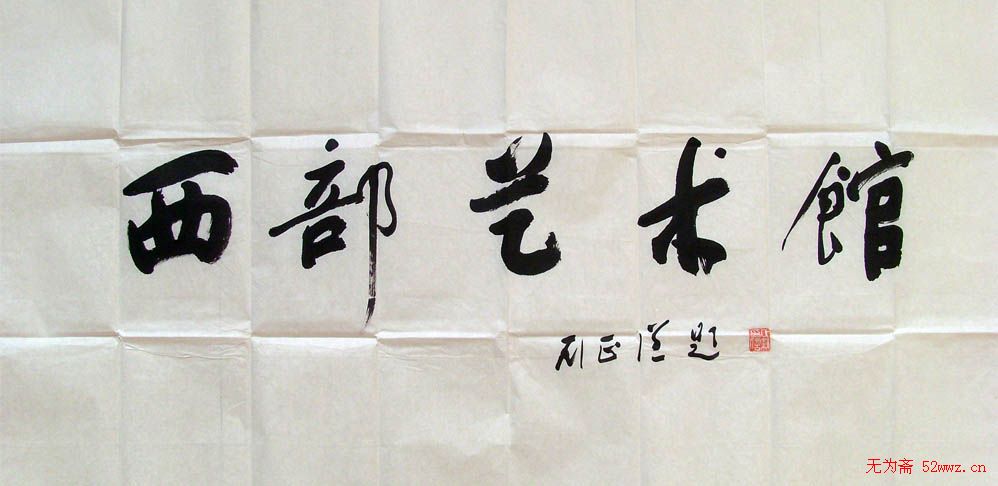 西部艺术館
刘正谥题
无为斋 52wwz.cn